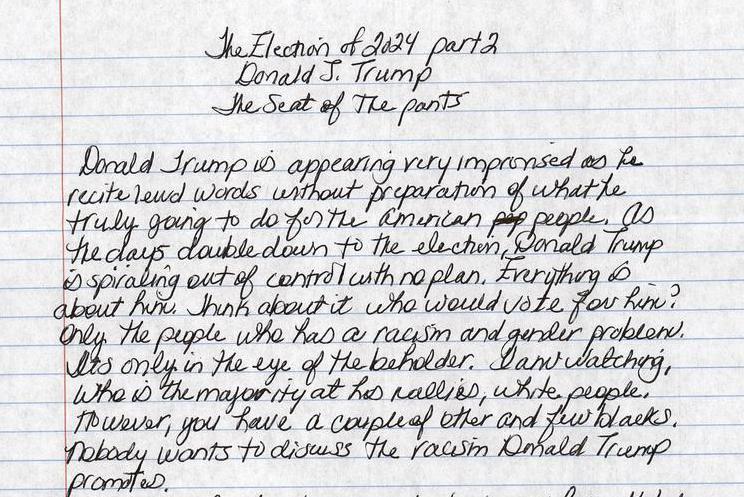 The Election of 2024 part 2
Donald J. Trump
The Seat of The pants
Donald Trump is appearing very improvised as he
recite lewd words without preparation of what he
truly going to do for the American people. As
the days double down to the election, Donald Trump
is spiraling out of control with no plan. Everything is
about him. Think about it who would vote for him?
Only the people who has a racism and gender problem.
Its only in the eye of the beholder. I am watching,
who is the majority at his rallies, white people.
However, you have a couple of other and few blacks.
Nobody wants to discuss the racism Donald Trump
promotes.